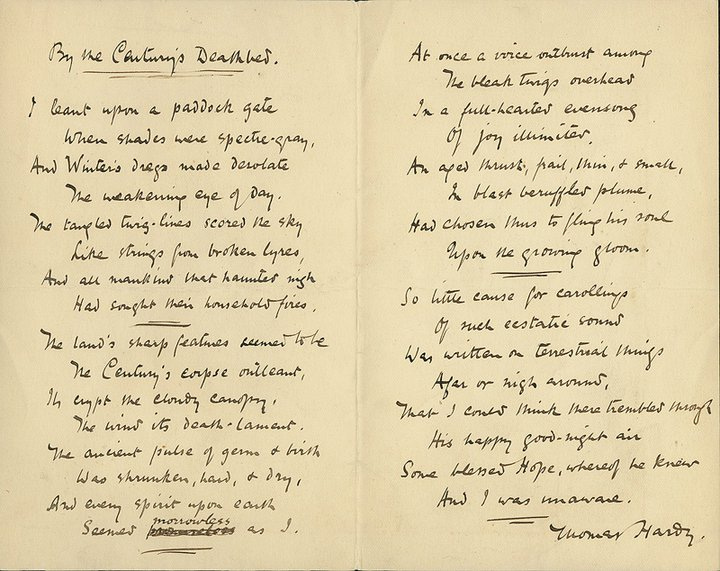 By the Century's Deathbed.
I leant upon a paddock gate
When shades were spectre-gray,
And Winter's dregs made desolate
The weakening eye of day.
The tangled twig-lines scored the sky
Like strings from broken lyres,
And all mankind that haunted nigh
Had sought their household fires.
The land's sharp features seemed to be
The Century's corpse outleant,
Its crypt the cloudy canopy,
The wind its death-lament.
The ancient pulse of germ & birth
Was shrunken, hard, & dry,
And every spirit upon earth
Seemed morrowless as I.
At once a voice outburst among
The bleak twigs overhead
In a full-hearted evensong
Of joy illimited.
An aged thrush, frail, thin, & small,
In blast-beruffled plume,
Had chosen thus to fling his soul
Upon the growing gloom.
So little cause for carollings
Of such ecstatic sound
Was written on terrestrial things
Afar or nigh around,
That I could think there trembled through
His happy good-night air
Some blessed Hope, whereof he knew
And I was unaware.
Thomas Hardy.